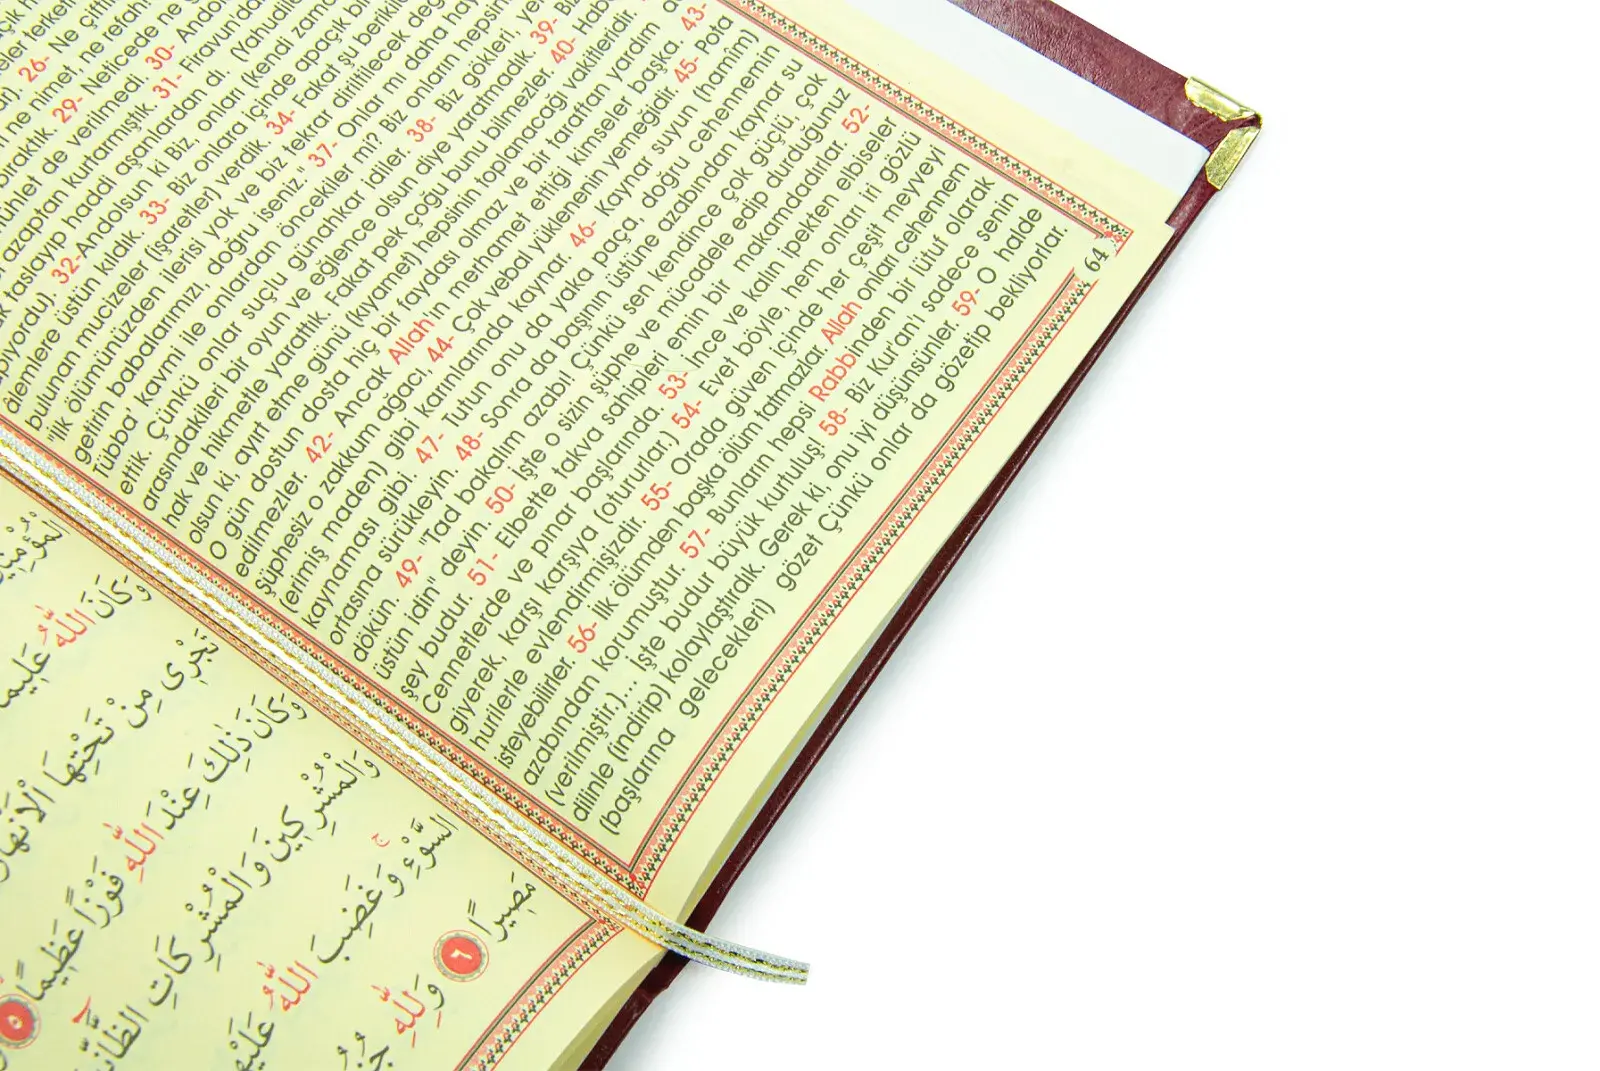 26- Ne
ne nimet, ne refah!
29- Neticede ne
de verilmedi. 30-
azaptan kurtarmıştık. 31- Firavun'da
taslayıp haddi aşanlardan di. (Yahudile
32-Andolsun ki Biz, onları (kendi
âlemlere üstün kıldık. 33- Biz onlara içinde apaçık
bulunan mucizeler (işaretler) verdik. 34- Fakat şu
"İlk ölümümüzden ilerisi yok ve biz tekrar diriltilecek
getirin babalarımızı, doğru iseniz." 37- Onlar mı daha
Tübba' kavmi ile onlardan öncekiler mi? Biz onların
ettik. Çünkü onlar suçlu günahkar idiler. 38- Biz gökleri,
arasındakileri bir oyun ve eğlence olsun diye yaratmadık. 39-
hak ve hikmetle yarattık. Fakat pek çoğu bunu bilmezler. 40-
olsun ki, ayırt etme günü (kıyamet) hepsinin toplanacağı vakitleridir.
O gün dostun dosta hiç bir faydası olmaz ve bir taraftan yardım
edilmezler. 42- Ancak Allah'ın merhamet ettiği kimseler başka. 43-
şüphesiz o zakkum ağacı, 44- Çok vebal yüklenenin yemeğidir. 45- Pota
(erimiş maden) gibi karınlarında kaynar. 46- Kaynar suyun (hamîm)
kaynaması gibi. 47- Tutun onu da yaka paça, doğru cehennemin
ortasına sürükleyin. 48- Sonra da başının üstüne azabından kaynar su
dökün. 49- "Tad bakalım azabı! Çünkü sen kendince çok güçlü, çok
üstün idin" deyin. 50- İşte o sizin şüphe ve mücadele edip durduğunuz
şey budur. 51- Elbette takva sahipleri emin bir makamdadırlar. 52-
Cennetlerde ve pınar başlarında. 53- İnce ve kalın ipekten elbiseler
giyerek, karşı karşıya (otururlar.) 54- Evet böyle, hem onları iri gözlü
hurilerle evlendirmişizdir. 55- Orada güven içinde her çeşit meyveyi
isteyebilirler. 56- İlk ölümden başka ölüm tatmazlar. Allah onları cehennem
azabından korumuştur. 57- Bunların hepsi Rabbinden bir lütuf olarak
(verilmiştir.)... İşte budur büyük kurtuluş! 58- Biz Kur'an'ı sadece senin
dilinle (indirip) kolaylaştırdık. Gerek ki, onu iyi düşünsünler. 59- O halde
(başlarına gelecekleri) gözet Çünkü onlar da gözetip bekliyorlar.
64
تَجْرٰى مِنْ تَحْتِهَا الْاَنْهَارُ
وَكَانَ ذٰلِكَ عِنْدَ اللّٰهِ فَوْزًا عَظٖيمًا ٥
وَالْمُشْرِكٖينَ وَالْمُشْرِكَاتِ
السَّوْءِ وَغَضِبَ اللّٰهُ عَلَيْهِمْ
مَصٖيرًا ٦ وَلِلّٰهِ
وَكَانَ اللّٰهُ عَلٖيمًا